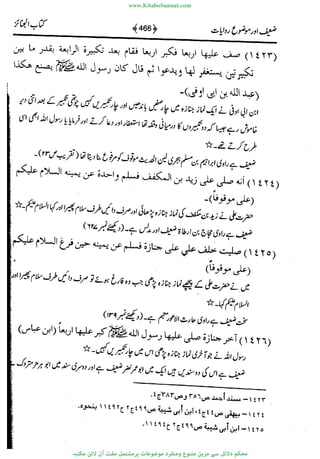 www.KitaboSunnat.com
ضعیف اور موضوع روایات ﴿466﴾ کتاب الجنائز
(١٤٢٣) صف علیها اربعا فکبر اربعا فقام بعد تکبیرة الرابعة بقدر ما بین
تکبیرتین یستغفر لها ویدعوا ثم قال کان رسول اللہ ﷺ یصنع هکذا
(عبد اللہ بن ابی اوفی)-
ابن ابی اوفی نے ایک نماز جنازہ میں چار
خاموش رہے جتنا کہ دو تکبیروں کا درمیانی وقفہ تھا استغفار اور دعا کرتے اور فرمایا رسول اللہ بھی اسی
طرح کرتے تھے۔☆
ضعیف ہے راوی ابراہیم بن مسلم ہجری لین الحدیث موقوف کو مرفوع بنا دیتا تھا (تقریب ص ٢٣)۔
(١٤٢٤) أنه صلی علی زید بن المکفف فسلم واحدة عن یمینه السلام علیکم
(علی موقوفا)-
حضرت علی نے زید بن مکفف کی نماز جنازہ پڑھائی اور صرف دائیں طرف سلام پھیرا اور کہا السلام علیکم۔☆
ضعیف ہے راوی حجاج بن ارطاة ضعیف اور مدلس ہے۔ (دیکھئے نمبر ٦٧)
(١٤٢٥) صلیت خلف علی علی جنازة فسلم عن یمینه حین فرغ السلام علیکم
(علی موقوفا)
میں نے حضرت علی کے پیچھے نماز جنازہ پڑھی جب وہ فارغ ہوئے تو صرف دائیں طرف سلام پھیرا اور
السلام علیکم کہا۔☆
سخت ضعیف ہے راوی حارث الاعور متہم ہے۔ (دیکھئے نمبر ١٣٩)
(١٤٢٦) آخر جنازة صلی علیها رسول اللہ ﷺ کبر علیها اربعا (ابن عباس)
رسول اللہ نے جو آخری نماز جنازہ پڑھی اس میں چار تکبیریں کہیں۔☆
ضعیف ہے اس کی دو سندیں ہیں ایک میں ضعیف ہے اور دوسری سند میں ابو ہرمز متروک ہے
١٤٢٣- مسند أحمد ص٣٥٦ وص٣٨٣ج٤.
١٤٢٤- بیهقی ص٤٤ج٤، ابن أبی شیبة ص٤٩٩ج٢ ح١١٤٩٢ بنحوه.
١٤٢٥- ابن أبی شیبة ص٤٩٩ج٢ ح١١٤٩٤.
محکم دلائل سے مزین متنوع ومنفرد موضوعات پر مشتمل مفت آن لائن مکتبہ